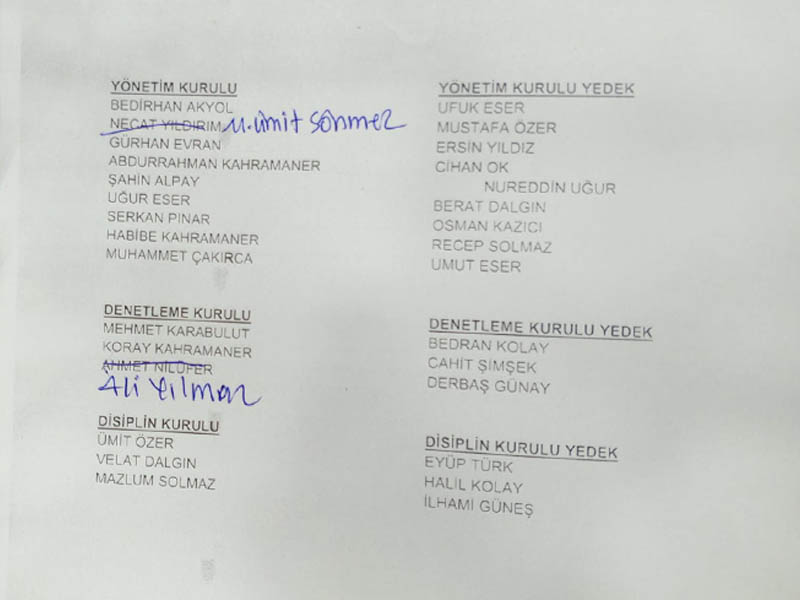 YÖNETİM KURULU
BEDİRHAN AKYOL
NECAT YILDIRIM M. ÜMİT SÖNMEZ
GÜRHAN EVRAN
ABDURRAHMAN KAHRAMANER
ŞAHİN ALPAY
UĞUR ESER
SERKAN PINAR
HABİBE KAHRAMANER
MUHAMMET ÇAKIRCA
DENETLEME KURULU
MEHMET KARABULUT
KORAY KAHRAMANER
AHMET NİLÜFER
Ali Yılmaz
DİSİPLİN KURULU
ÜMİT ÖZER
VELAT DALGIN
MAZLUM SOLMAZ
YÖNETİM KURULU YEDEK
UFUK ESER
MUSTAFA ÖZER
ERSİN YILDIZ
CİHAN OK
NUREDDİN UĞUR
BERAT DALGIN
OSMAN KAZICI
RECEP SOLMAZ
UMUT ESER
DENETLEME KURULU YEDEK
BEDRAN KOLAY
CAHİT ŞİMŞEK
DERBAŞ GÜNAY
DİSİPLİN KURULU YEDEK
EYÜP TÜRK
HALİL KOLAY
İLHAMİ GÜNEŞ